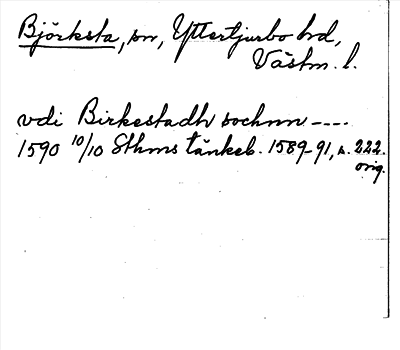 Björksta, sn, Yttertjurbo hd,
Västm. l.
vdi Birkestadh sochnn ----
1590 10/10 Sthms tänkeb. 1589-91, s. 222.
orig.